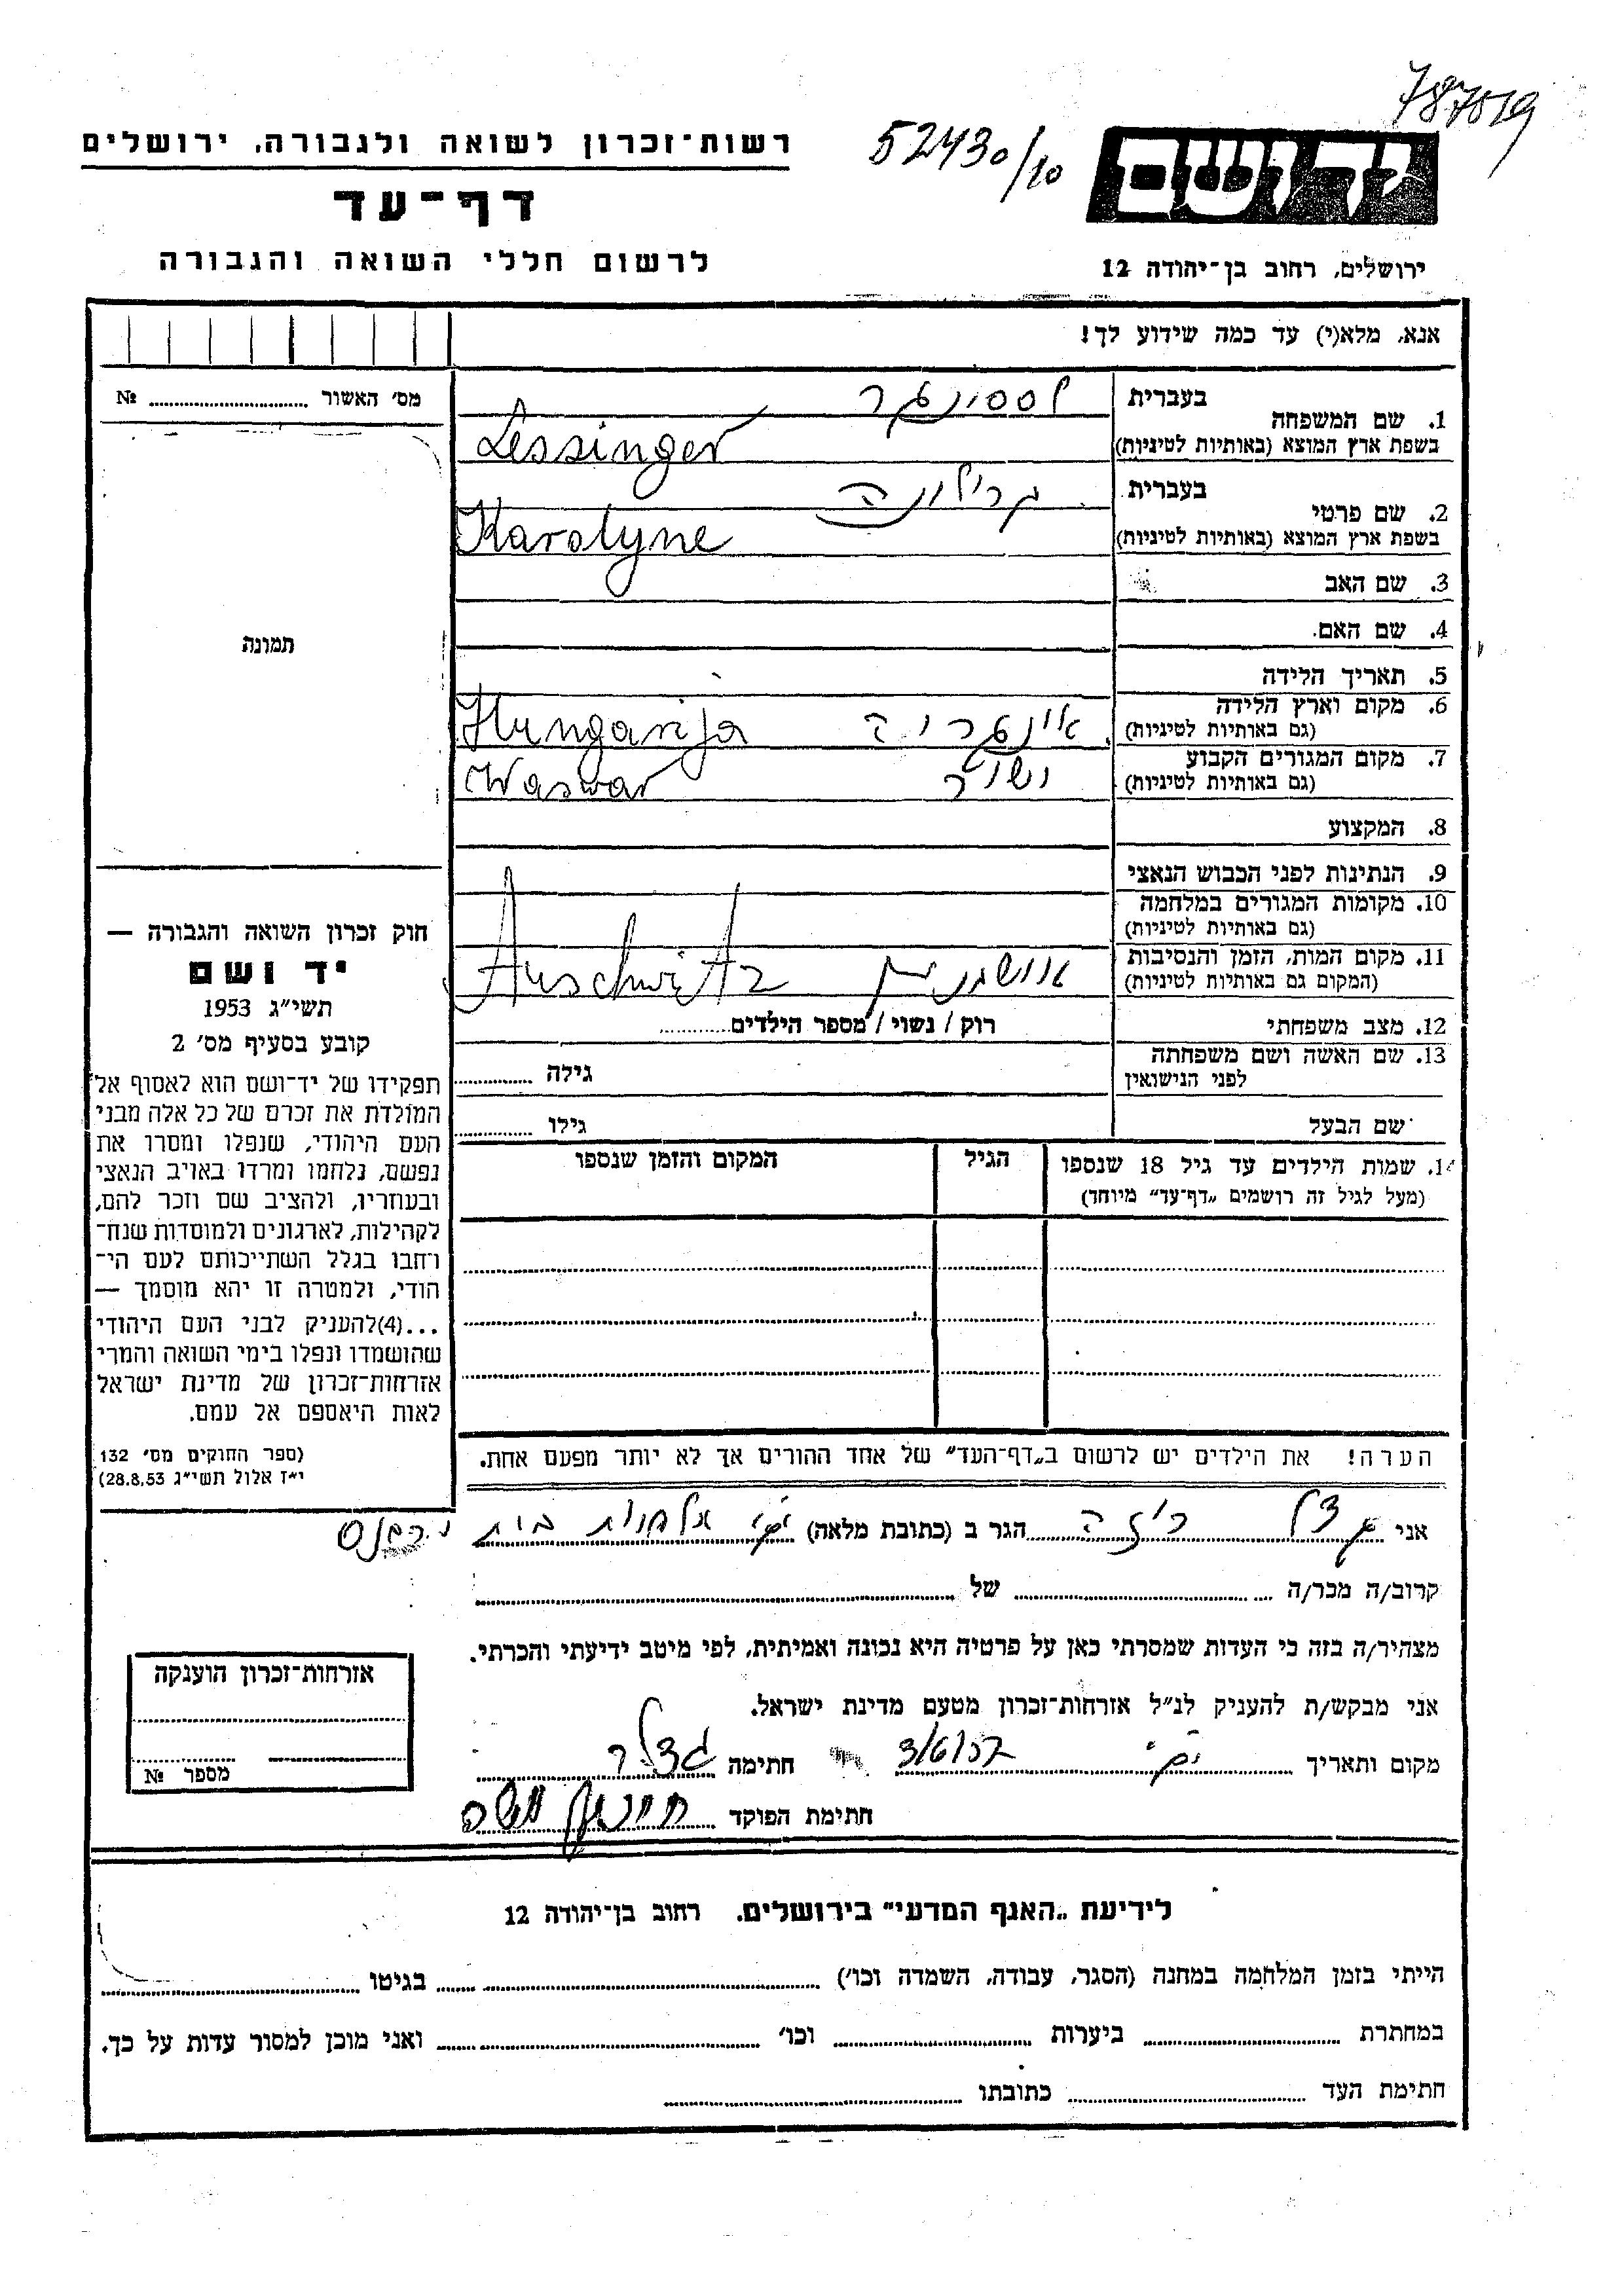 787519
52430/10
רשות־זכרון לשואה ולגבורה, ירושלים
יד ושם
דף־עד
לרשום חללי השואה והגבורה
ירושלים, רחוב בן־יהודה 12
אנא, מלא(י) עד כמה שידוע לך!
מס׳ האשור ............ №
תמונה
בעברית לסינגר
1. שם המשפחה
בשפת ארץ המוצא (באותיות לטיניות) Lessinger
בעברית
2. שם פרטי
בשפת ארץ המוצא (באותיות לטיניות) Karolyne
3. שם האב
4. שם האם
5. תאריך הלידה
6. מקום וארץ הלידה
(גם באותיות לטיניות) אונגריה Hungarija
7. מקום המגורים הקבוע
(גם באותיות לטיניות) Waswar
8. המקצוע
9. הנתינות לפני הכבוש הנאצי
10. מקומות המגורים במלחמה
(גם באותיות לטיניות)
11. מקום המות, הזמן והנסיבות
(המקום גם באותיות לטיניות) אושויץ Auschwitz
12. מצב משפחתי רוק / נשוי / מספר הילדים............
13. שם האשה ושם משפחתה
לפני הנישואין גילה ............
שם הבעל גילו ............
14. שמות הילדים עד גיל 18 שנספו הגיל המקום והזמן שנספו
(מעל לגיל זה רושמים „דף־עד״ מיוחד)
הערה! את הילדים יש לרשום ב„דף־העד״ של אחד ההורים אך לא יותר מפעם אחת.
חוק זכרון השואה והגבורה —
יד ושם
תשי״ג 1953
קובע בסעיף מס׳ 2
תפקידו של יד־ושם הוא לאסוף אל
המולדת את זכרם של כל אלה מבני
העם היהודי, שנפלו ומסרו את
נפשם, נלחמו ומרדו באויב הנאצי
ובעוזריו, ולהציב שם וזכר להם,
לקהילות, לארגונים ולמוסדות שנח־
רחבו בגלל השתייכותם לעם הי־
הודי, ולמטרה זו יהא מוסמך —
...(4)להעניק לבני העם היהודי
שהושמדו ונפלו בימי השואה והמרי
אזרחות־זכרון של מדינת ישראל
לאות היאספם אל עמם.
(ספר החוקים מס׳ 132
י״ז אלול תשי״ג 28.8.53)
אני הגר ב (כתובת מלאה) בית
קרוב/ה מכר/ה ............ של ............
מצהיר/ה בזה כי העדות שמסרתי כאן על פרטיה היא נכונה ואמיתית, לפי מיטב ידיעתי והכרתי.
אני מבקש/ת להעניק לנ״ל אזרחות־זכרון מטעם מדינת ישראל.
מקום ותאריך חתימה
חתימת הפוקד
אזרחות־זכרון הוענקה
מספר №
לידיעת „האגף המדעי״ בירושלים, רחוב בן־יהודה 12
הייתי בזמן המלחמה במחנה (הסגר, עבודה, השמדה וכו׳) ............ בגיטו ............
במחתרת ............ ביערות ............ וכו׳ ............ ואני מוכן למסור עדות על כך.
חתימת העד ............ כתובתו ............